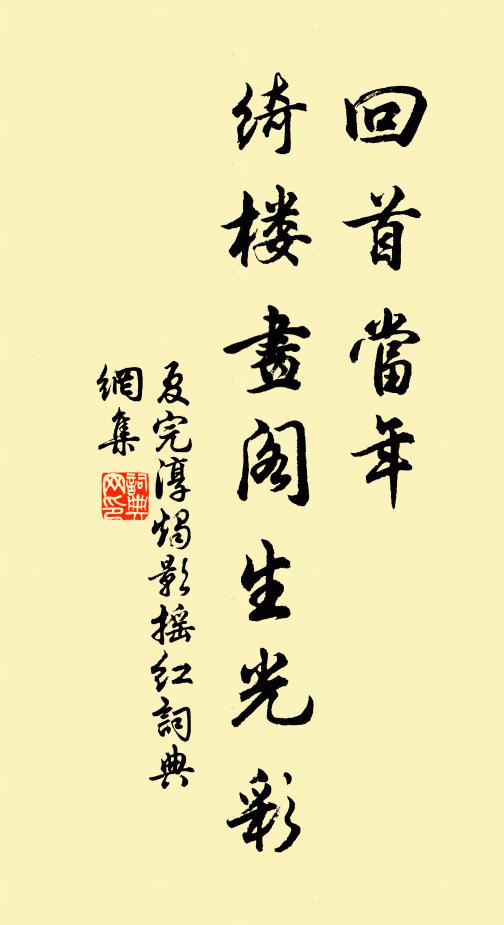 回首當年
綺楼畫阁生光彩
夏完淳燭影摇红詞典
網集
詞典
网印